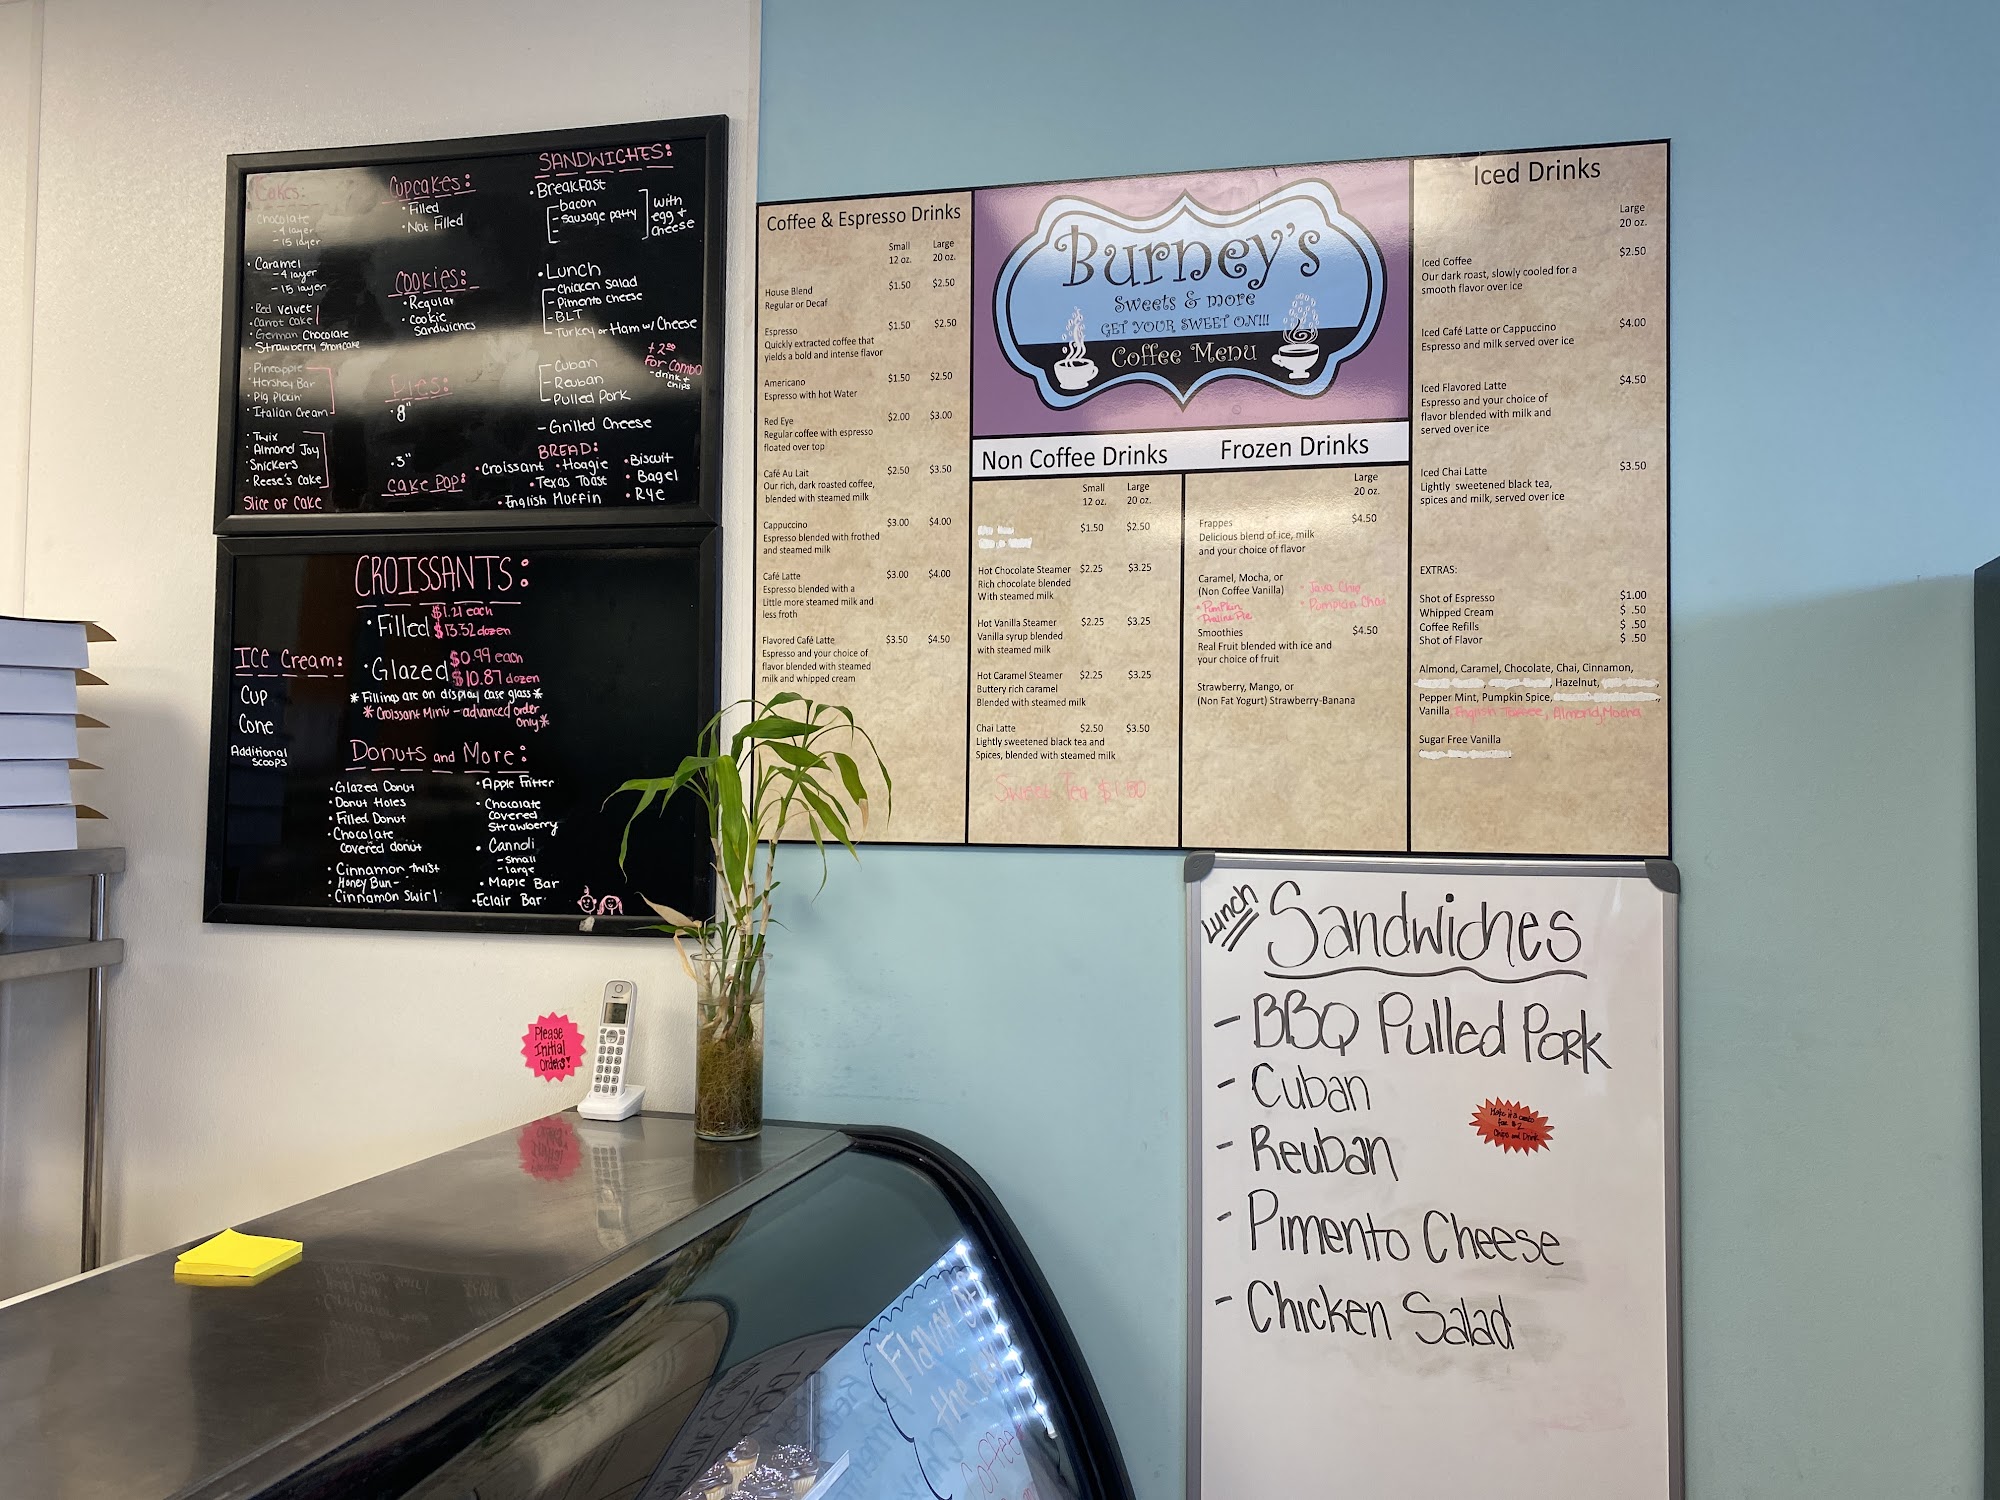 Cakes:
Chocolate
- 4 layer
- 15 layer
• Caramel
- 4 layer
- 15 layer
• Red Velvet
• Carrot Cake
• German Chocolate
• Strawberry Shortcake
• Pineapple
• Hershey Bar
• Pig Pickin'
• Italian Cream
• Twix
• Almond Joy
• Snickers
• Reese's Cake
Slice of Cake
Cupcakes:
• Filled
• Not Filled
Cookies:
• Regular
• Cookie
Sandwiches
Pies:
• 8"
• 3"
Cake Pop:
SANDWICHES:
• Breakfast
bacon
- sausage patty
with
egg +
cheese
• Lunch
- Chicken Salad
- Pimento cheese
- BLT
- Turkey or Ham w/ Cheese
- Cuban
- Reuban
- Pulled Pork
+ 2.00
For combo
- drink +
chips
- Grilled Cheese
BREAD:
• Croissant • Hoagie • Biscuit
• Texas Toast • Bagel
• English Muffin • Rye
CROISSANTS:
• Filled $1.21 each
$13.32 dozen
• Glazed $0.99 each
$10.87 dozen
* Fillings are on display case glass *
* Croissant Mini - advanced order
only *
Ice Cream:
Cup
Cone
Additional
Scoops
Donuts and More:
• Glazed Donut
• Donut Holes
• Filled Donut
• Chocolate
covered donut
• Cinnamon twist
• Honey Bun -
• Cinnamon Swirl
• Apple Fritter
• Chocolate
Covered
Strawberry
• Cannoli
- small
- large
• Maple Bar
• Eclair Bar
Coffee & Espresso Drinks
Small Large
12 oz. 20 oz.
House Blend $1.50 $2.50
Regular or Decaf
Espresso $1.50 $2.50
Quickly extracted coffee that
yields a bold and intense flavor
Americano $1.50 $2.50
Espresso with hot Water
Red Eye $2.00 $3.00
Regular coffee with espresso
floated over top
Café Au Lait $2.50 $3.50
Our rich, dark roasted coffee,
blended with steamed milk
Cappuccino $3.00 $4.00
Espresso blended with frothed
and steamed milk
Café Latte $3.00 $4.00
Espresso blended with a
Little more steamed milk and
less froth
Flavored Café Latte $3.50 $4.50
Espresso and your choice of
flavor blended with steamed
milk and whipped cream
Burney's
Sweets & more
GET YOUR SWEET ON!!!
Coffee Menu
Non Coffee Drinks
Small Large
12 oz. 20 oz.
$1.50 $2.50
Hot Chocolate Steamer $2.25 $3.25
Rich chocolate blended
With steamed milk
Hot Vanilla Steamer $2.25 $3.25
Vanilla syrup blended
with steamed milk
Hot Caramel Steamer $2.25 $3.25
Buttery rich caramel
Blended with steamed milk
Chai Latte $2.50 $3.50
Lightly sweetened black tea and
Spices, blended with steamed milk
Sweet Tea $1.00
Frozen Drinks
Large
20 oz.
Frappes $4.50
Delicious blend of ice, milk
and your choice of flavor
Caramel, Mocha, or
(Non Coffee Vanilla)
• Java Chip
• Pumpkin Chai
• Pumpkin
Praline Pie
Smoothies $4.50
Real Fruit blended with ice and
your choice of fruit
Strawberry, Mango, or
(Non Fat Yogurt) Strawberry-Banana
Iced Drinks
Large
20 oz.
Iced Coffee $2.50
Our dark roast, slowly cooled for a
smooth flavor over ice
Iced Café Latte or Cappuccino $4.00
Espresso and milk served over ice
Iced Flavored Latte $4.50
Espresso and your choice of
flavor blended with milk and
served over ice
Iced Chai Latte $3.50
Lightly sweetened black tea,
spices and milk, served over ice
EXTRAS:
Shot of Espresso $1.00
Whipped Cream $ .50
Coffee Refills $ .50
Shot of Flavor $ .50
Almond, Caramel, Chocolate, Chai, Cinnamon,
Hazelnut,
Pepper Mint, Pumpkin Spice,
Vanilla English Toffee, Almond, Mocha
Sugar Free Vanilla
Lunch Sandwiches
- BBQ Pulled Pork
- Cuban
- Reuban
- Pimento Cheese
- Chicken Salad
Make it a combo
for $2
Chips and Drink
Please
Initial
Orders!
Flavor of
the day
Coffee